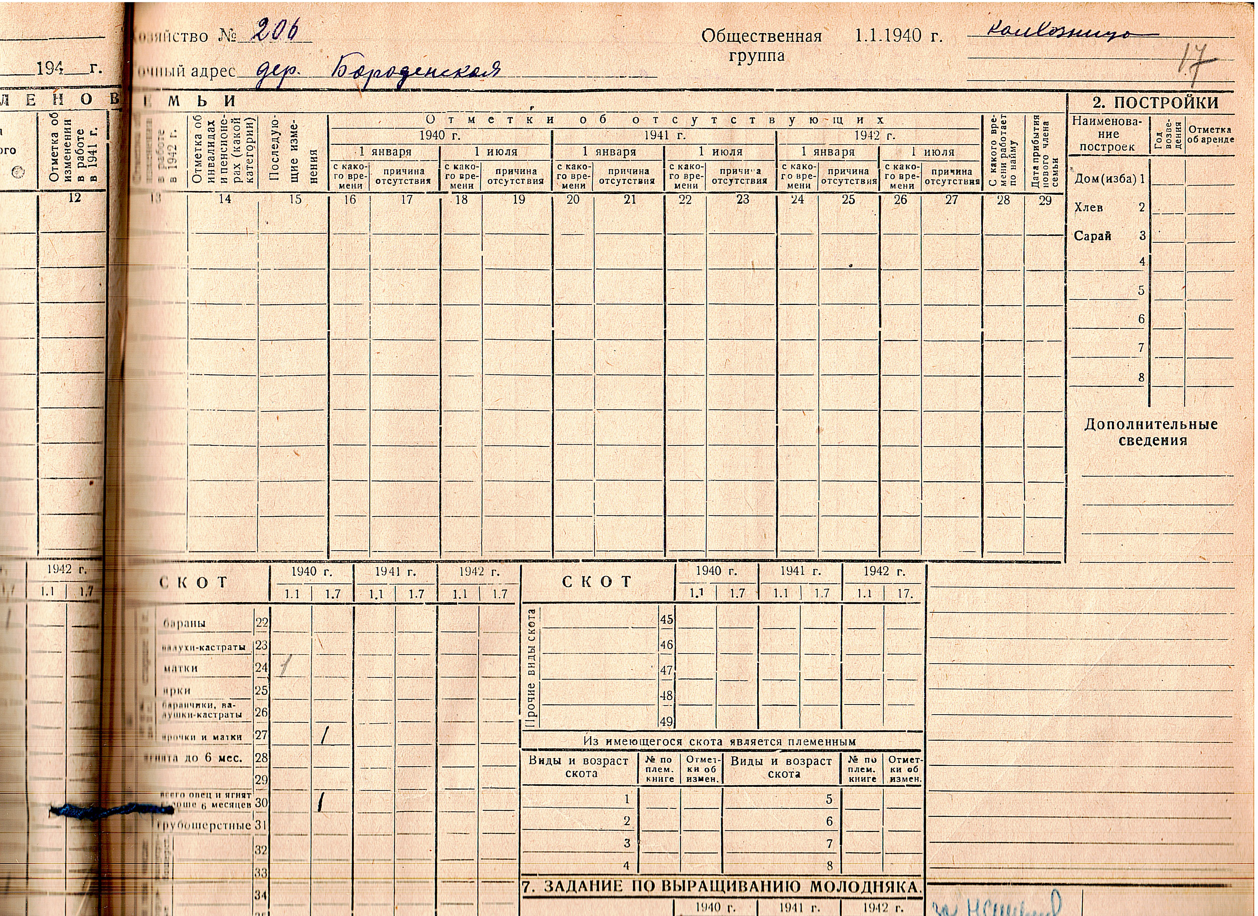 озяйство № 206
Общественная группа 1.1.1940 г. колхозница
17
194 г.
очный адрес дер. Бороденская
ЛЕНОВ ЕМЬИ
2. ПОСТРОЙКИ
Отметка об изменении в работе в 1941 г.
в работе в 1942 г.
Отметка об инвалидах и пенсионерах (какой категории)
Последующие изменения
Отметки об отсутствующих
1940 г. 1941 г. 1942 г.
1 января 1 июля 1 января 1 июля 1 января 1 июля
с какого времени причина отсутствия с какого времени причина отсутствия с какого времени причина отсутствия с какого времени причина отсутствия с какого времени причина отсутствия с какого времени причина отсутствия
С какого времени работает по найму
Дата прибытия нового члена семьи
Наименование построек
Год возведения
Отметка об аренде
12 13 14 15 16 17 18 19 20 21 22 23 24 25 26 27 28 29
Дом(изба) 1
Хлев 2
Сарай 3
4
5
6
7
8
Дополнительные
сведения
1942 г.
1.1 1.7
СКОТ 1940 г. 1941 г. 1942 г.
1.1 1.7 1.1 1.7 1.1 1.7
бараны 22
валухи-кастраты 23
матки 24 1
ярки 25
баранчики, валушки-кастраты 26
ярочки и матки 27 1
ягнята до 6 мес. 28
29
всего овец и ягнят
старше 6 месяцев 30 1
грубошерстные 31
32
33
34
СКОТ 1940 г. 1941 г. 1942 г.
1.1 1.7 1.1 1.7 1.1 17.
Прочие виды скота
45
46
47
48
49
Из имеющегося скота является племенным
Виды и возраст скота № по плем. книге Отметки об измен. Виды и возраст скота № по плем. книге Отметки об измен.
1 5
2 6
3 7
4 8
7. ЗАДАНИЕ ПО ВЫРАЩИВАНИЮ МОЛОДНЯКА.
1940 г. 1941 г. 1942 г.
за